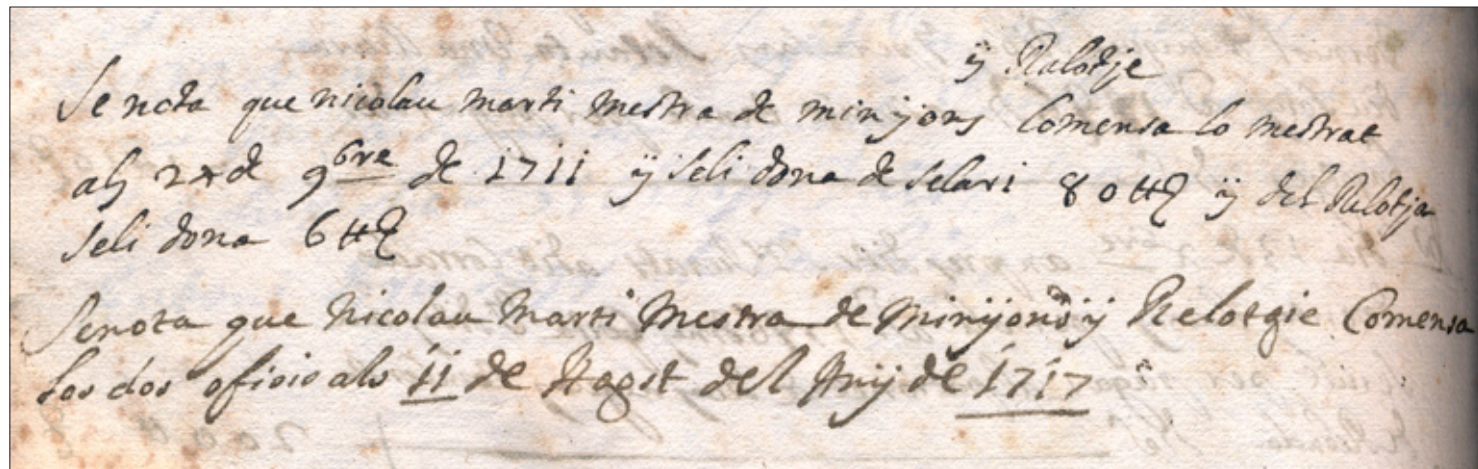 ÿ Ralotje
Se nota que nicolau marti mestra de minÿons Comensa lo mestrat
als 2 de 9bre de 1711 ÿ seli dona de selari 80 ÿ del Ralotja
seli dona 6
Se nota que Nicolau Marti Mestra de Minÿons ÿ Relotgie Comensa
los dos oficio als 11 de Agost del Anÿ de 1717